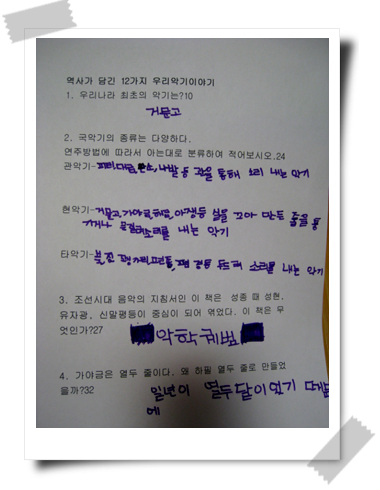 역사가 담긴 12가지 우리악기이야기
1. 우리나라 최초의 악기는?10
거문고
2. 국악기의 종류는 다양하다.
연주방법에 따라서 아는대로 분류하여 적어보시오.24
관악기-피리,대금,단소,나발 등 관을 통해 소리 내는 악기
현악기-거문고,가야금,해금,아쟁등 실을 꼬아 만든 줄을 통
겨나 문질러소리를 내는 악기
타악기-북,장 꽹과리,편종,편경 등 두드려 소리를 내는 악기
3. 조선시대 음악의 지침서인 이 책은 성종 때 성현,
유자광, 신말평등이 중심이 되어 엮었다. 이 책은 무
엇인가?27
악학궤범
4. 가야금은 열두 줄이다. 왜 하필 열두 줄로 만들었
을까?32
일년이 열두달이었기 때문
에